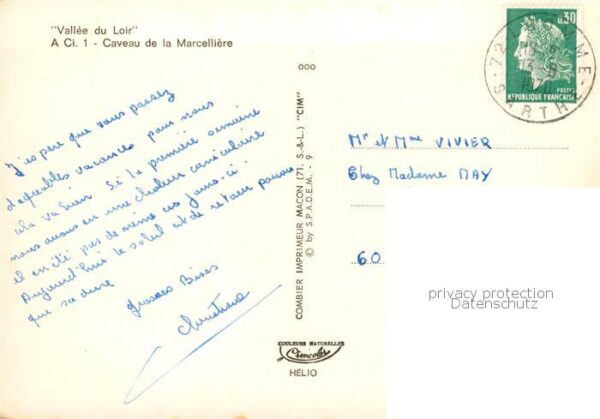 "Vallée du Loir"
A Ci. 1 - Caveau de la Marcellière
J'espère que vous passez
d'agréables vacances pour nous
cela va bien. Si la première semaine
nous avons eu une chaleur caniculaire
il en été pas de même ces jours-ci.
Aujourd'hui le soleil est de retour pourvu
que sa dure
Grosses Bises
Christiane
COMBIER IMPRIMEUR MACON (71. S.-&L.) "CIM"
© by S.P.A.D.E.M. - 9
COULEURS NATURELLES
Cimcolor
HÉLIO
0,30
POSTES
REPUBLIQUE FRANÇAISE
72
SARTHE
Mr et Mme VIVIER
Chez Madame MAY
60
privacy protection
Datenschutz